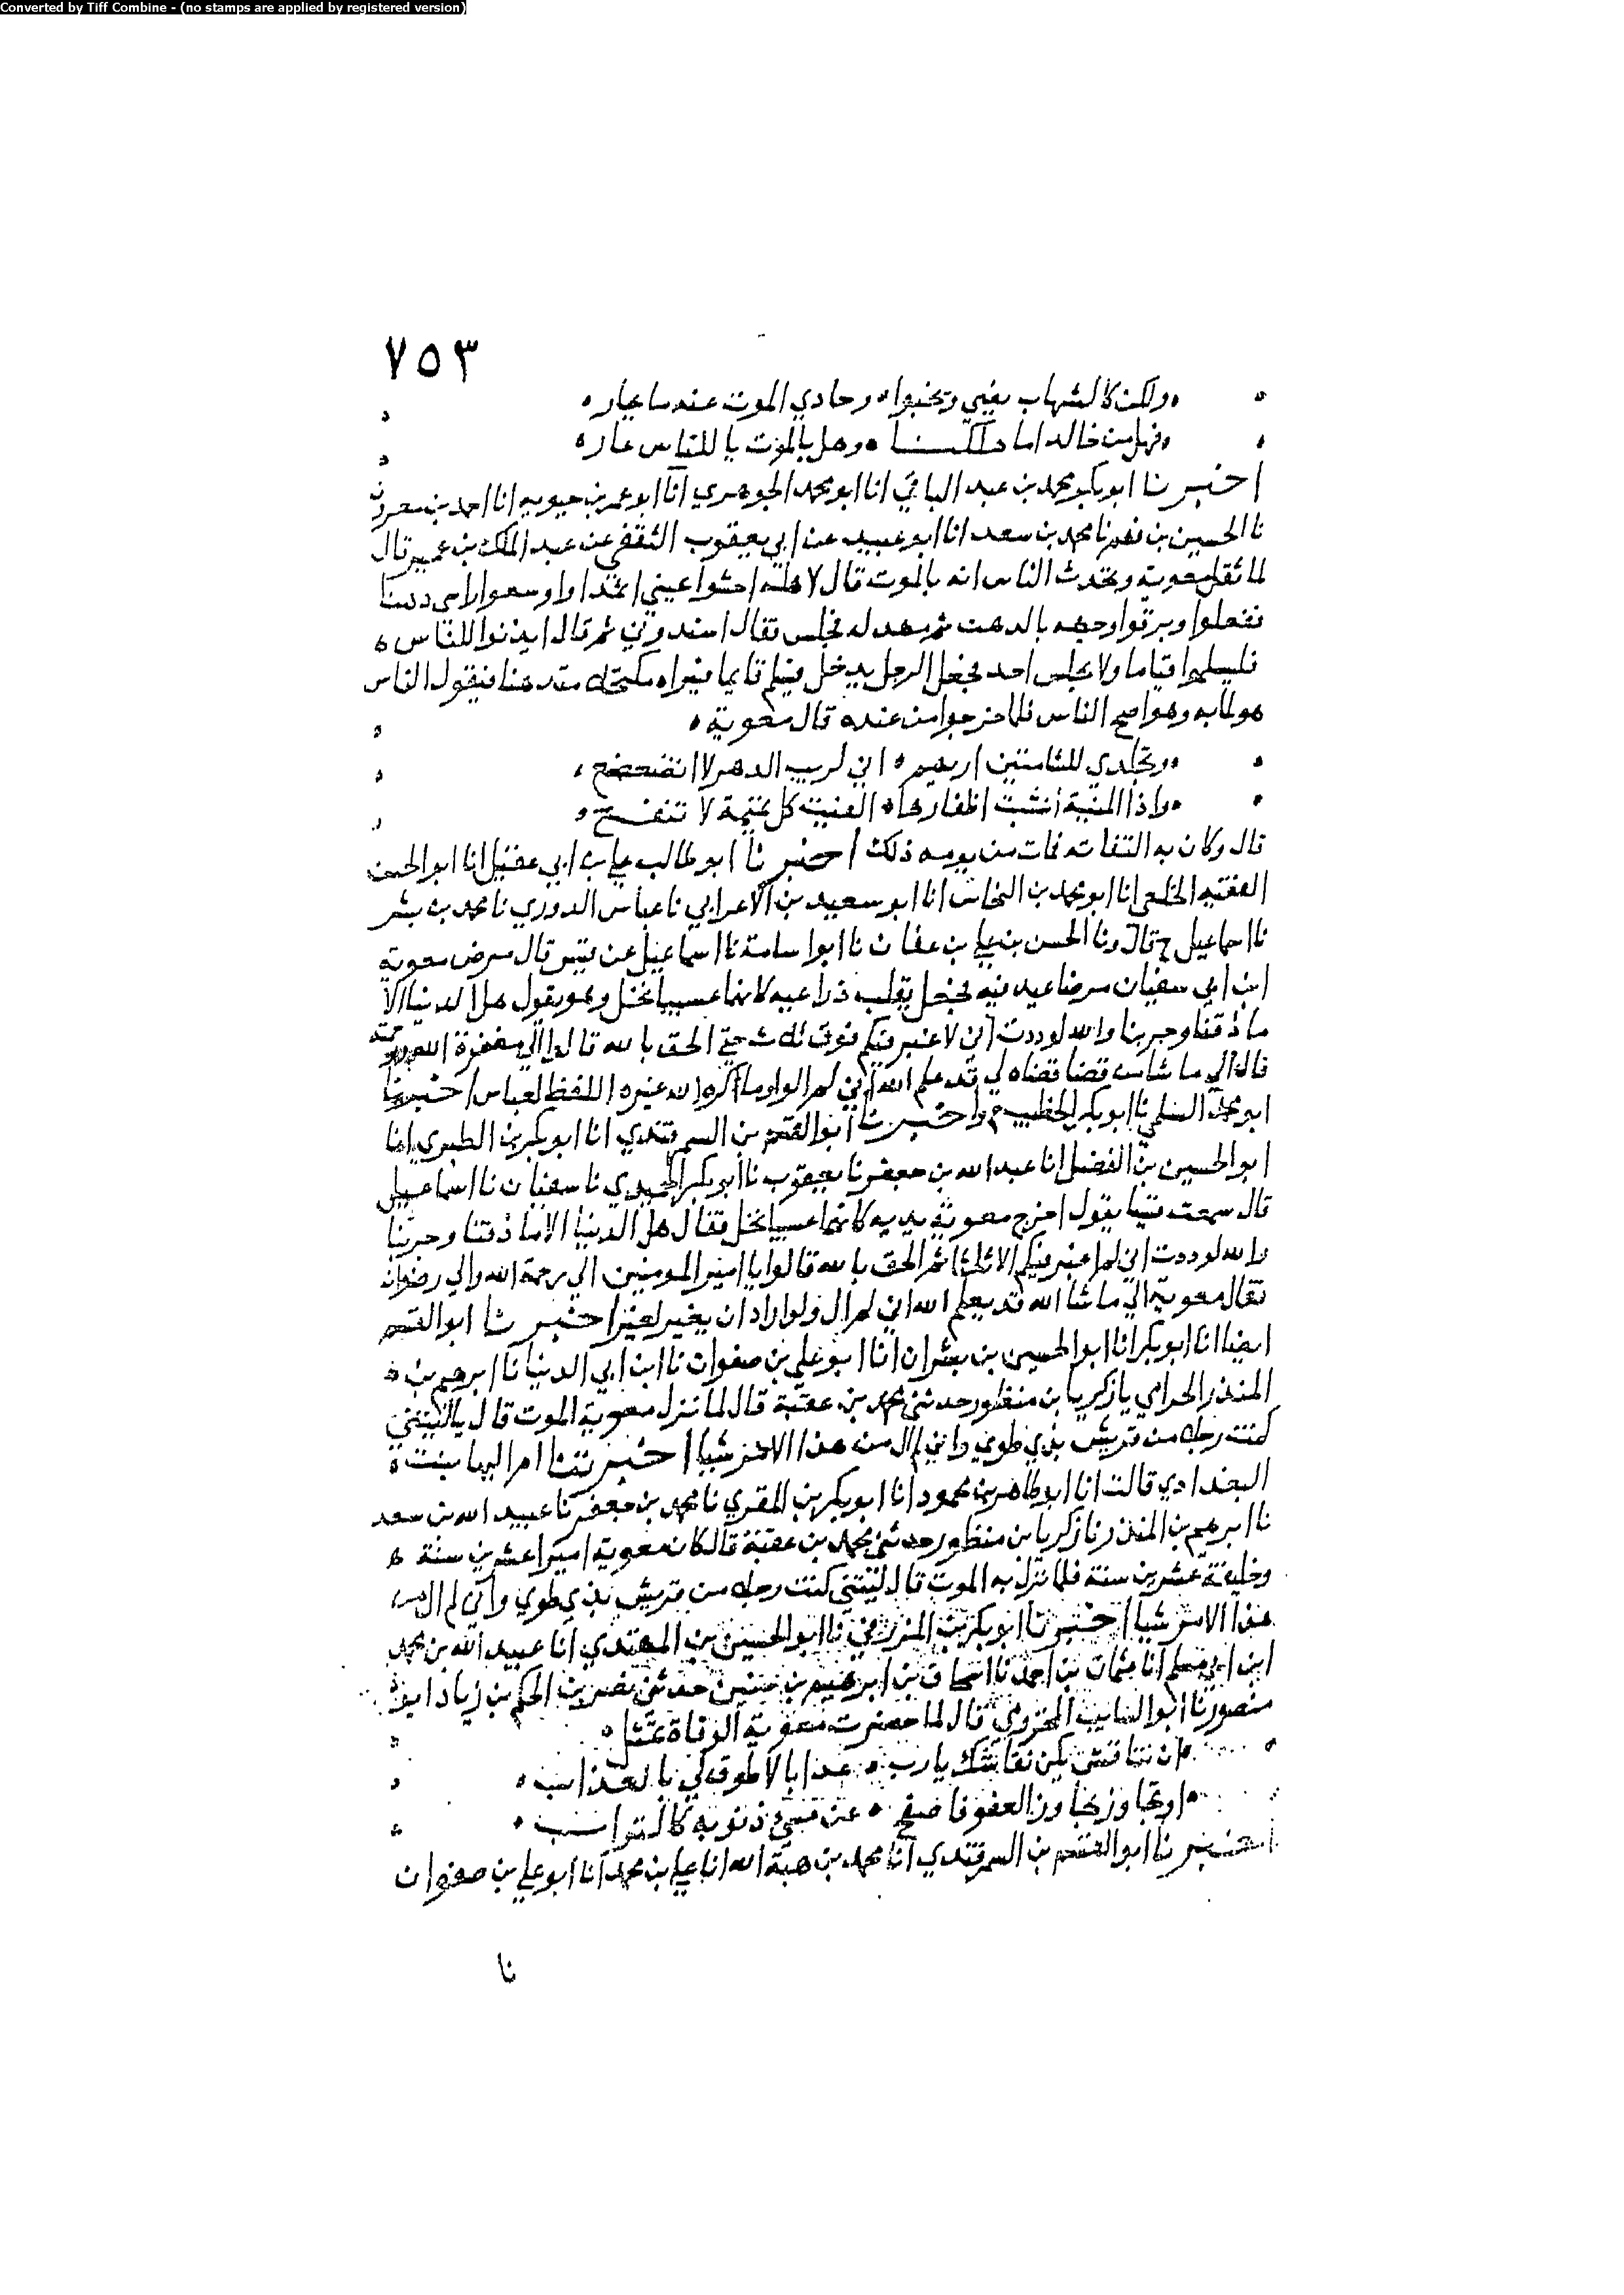 Converted by Tiff Combine - (no stamps are applied by registered version)
٧٥٣
ولكن كالشهاب يضي ويخبوا وحادي الموت عنه ما يحار
فهل من خالد اما هلكنا وهل بالموت يا للناس عار
اخبرنا ابو بكر محمد بن عبد الباقي انا ابو محمد الجوهري انا ابو عمر بن حيويه انا احمد بن معروف
نا الحسين بن فهم نا محمد بن سعد انا ابو عبيد عن ابي يعقوب الثقفي عن عبد الملك بن عمير قال
لما ثقل معوية وتحدث الناس انه بالموت قال لاهله احشوا عيني اثمدا واوسعوا راسي دهنا
ففعلوا وبرقوا وجهه بالدهن ثم مهد له فجلس فقال اسندوني ثم قال ايذنوا للناس
فليسلموا قياما ولا يجلس احد فجعل الرجل يدخل فيسلم قايما فيراه مكتحلا متدهنا فيقول الناس
هو لمابه وهو اصح الناس فلما خرجوا من عنده قال معوية
وتجلدي للشامتين اريهم اني لريب الدهر لا اتضعضع
واذا المنية أنشبت اظفارها الفيت كل تميمة لا تنفع
قال وكان به التفاته فمات من يومه ذلك اخبرنا ابو طالب علي بن ابي عقيل انا ابو الحسن
الفقيه الخلعي انا ابو محمد بن النحاس انا ابو سعيد بن الاعرابي نا عباس الدوري نا محمد بن بشر
نا اسماعيل ح قال ونا الحسن بن علي بن عفان نا ابو اسامة نا اسماعيل عن قيس قال مرض معوية
ابن ابي سفيان مرضا عيد فيه فجعل يقلب ذراعيه كانهما عسيبا نخل وهو يقول هل الدنيا الا
ما ذقنا وجربنا والله لوددت اني لا اغبر فيكم فوق ثلث حتى الحق بالله قالوا الي مغفرة الله ورحمته
قال الي ما شا من قضا قضاه لي قد علم الله اني لم الوا وما كره الله غيره اللفظ لعباس اخبرنا
ابو محمد السلمي نا ابو بكر الخطيب ح واخبرنا ابو القسم بن السمرقندي انا ابو بكر بن الطبري انا
ابو الحسين بن الفضل انا عبد الله بن جعفر نا يعقوب نا ابو بكر الحميدي نا سفيان نا اسماعيل
قال سمعت قيسا يقول اخرج معوية يديه كانهما عسيبا نخل فقال هل الدنيا الا ما ذقنا وجربنا
والله لوددت اني لم اغبر فيكم الا ثلاثا ثم الحق بالله قالوا يا امير المومنين الي رحمة الله والي رضوانه
فقال معوية الي ما شا الله قد يعلم الله اني لم ال ولو اراد ان يغير لغير اخبرنا ابو القسم
ايضا انا ابو بكر انا ابو الحسين بن بشران انا ابو علي بن صفوان نا ابن ابي الدنيا نا ابرهيم بن
المنذر الحزامي يا زكريا بن منظور حدثني محمد بن عقبة قال لما نزل معوية الموت قال يا ليتني
كنت رجلا من قريش بذي طوي واني لم ال من هذا الامر شيا اخبرتنا ام البها بنت
البغدادي قالت انا ابو طاهر بن محمود انا ابو بكر بن المقري نا محمد بن جعفر نا عبيد الله بن سعد
نا ابرهيم بن المنذر نا زكريا بن منظور حدثني محمد بن عقبة قال كان معوية اميرا عشرين سنة
وخليفة عشرين سنة فلما نزل به الموت قال ليتني كنت رجلا من قريش بذي طوي واني لم ال من
هذا الامر شيا اخبرنا ابو بكر بن المزرفي نا ابو الحسين بن المهتدي انا عبيد الله بن محمد
ابن ابي مسلم انا عثمان بن احمد نا اسحاق بن ابرهيم بن سنين حدثني نصر بن الحكم بن زياد ابو
منصور نا ابو السايب المخزومي قال لما حضرت معوية الوفاة تمثل
ان تناقش يكن نقاشك يا رب عذابا لا طوق لي بالعذاب
او تجاوز تجاوز العفو فاصفح عن مسي ذنوبه كالتراب
اخبرنا ابو القسم بن السمرقندي انا محمد بن هبة الله انا علي بن محمد انا ابو علي بن صفوان
نا